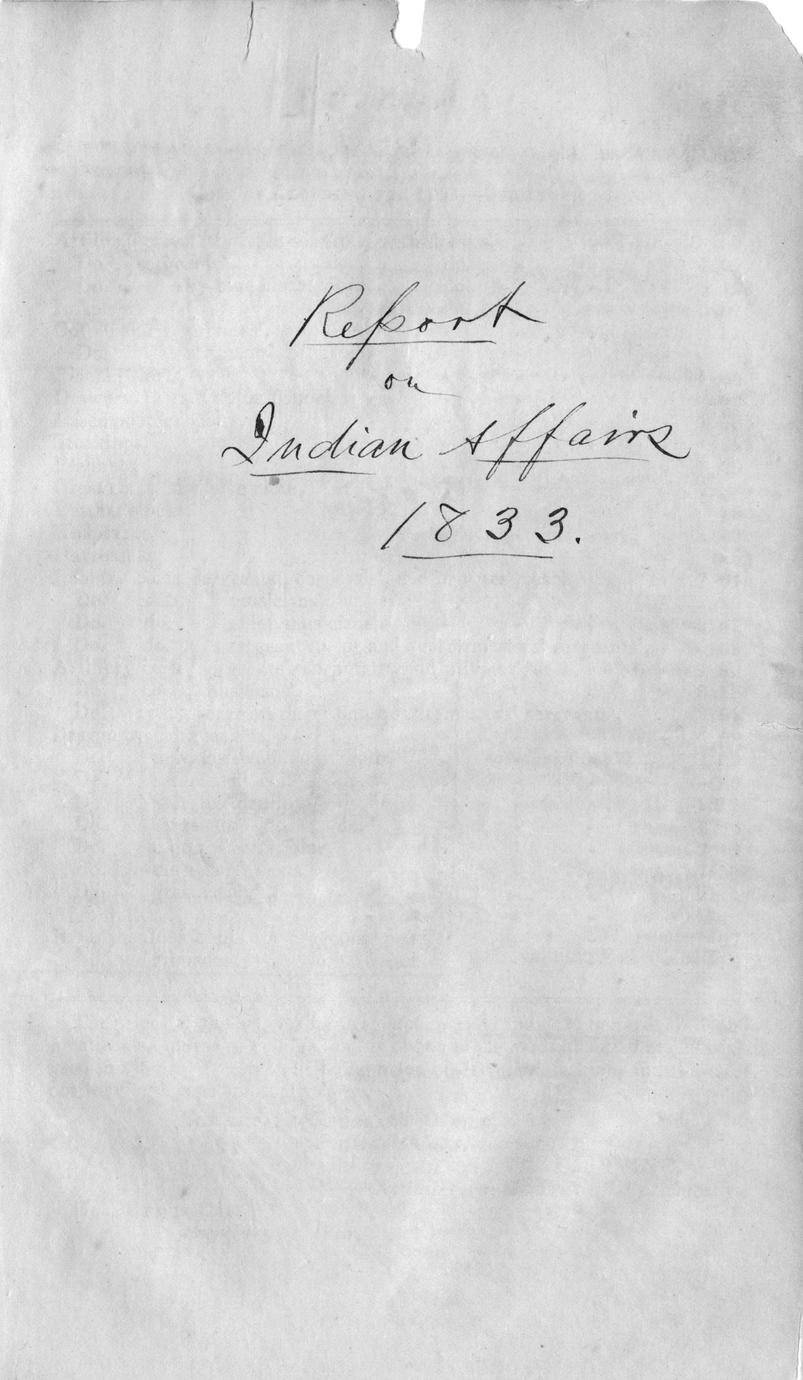 Report
on
Indian Affairs
1833.